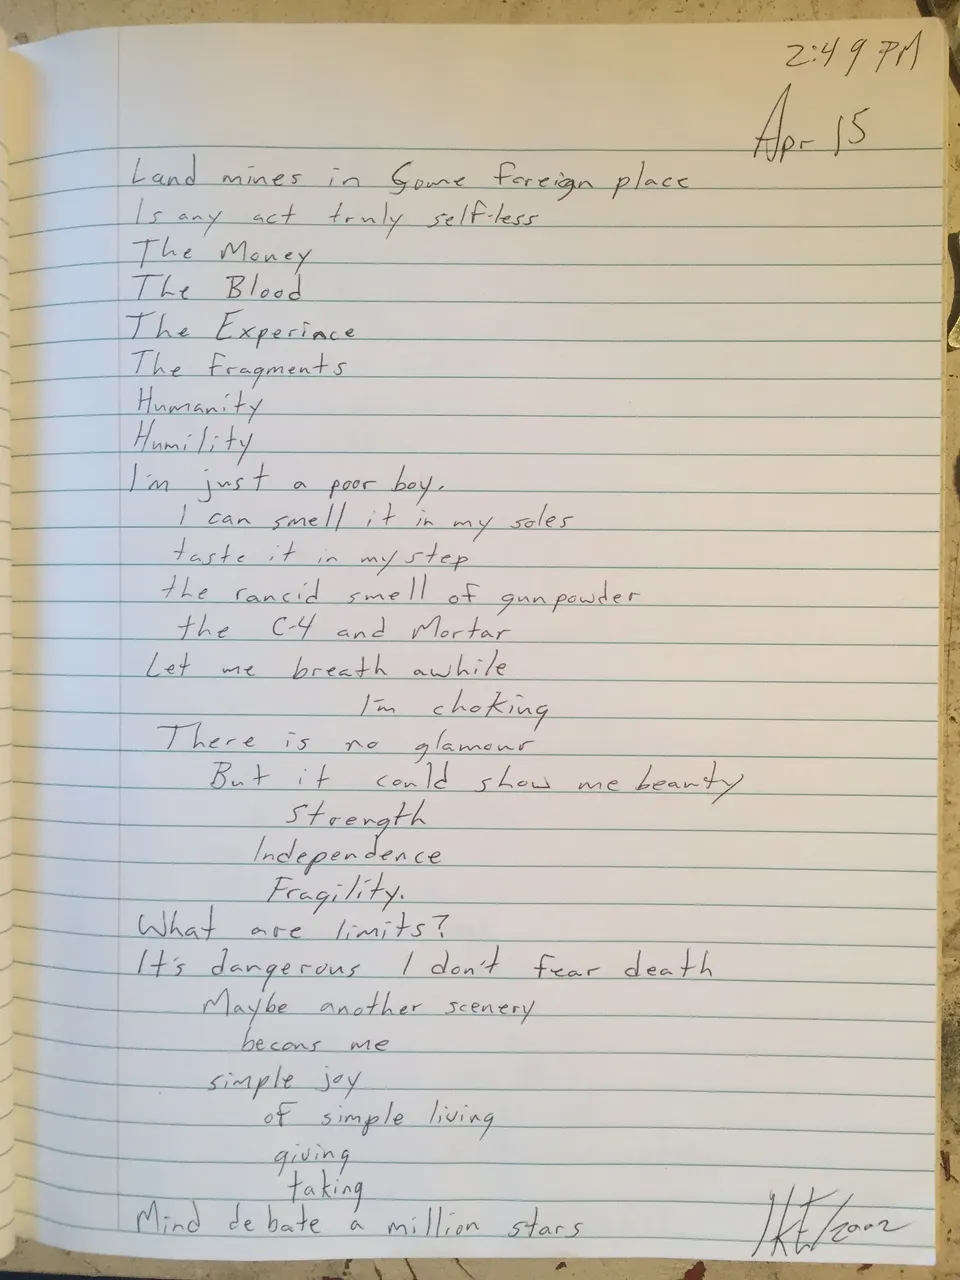 2:49 PM
Apr 15
Land mines in Some foreign place
Is any act truly self-less
The Money
The Blood
The Experince
The Fragments
Humanity
Humility
I'm just a poor boy.
I can smell it in my soles
taste it in my step
the rancid smell of gunpowder
the C-4 and Mortar
Let me breath awhile
I'm choking
There is no glamour
But it could show me beauty
Strength
Independence
Fragility.
What are limits?
It's dangerous I don't fear death
Maybe another scenery
becons me
simple joy
of simple living
giving
taking
Mind debate a million stars
/2002